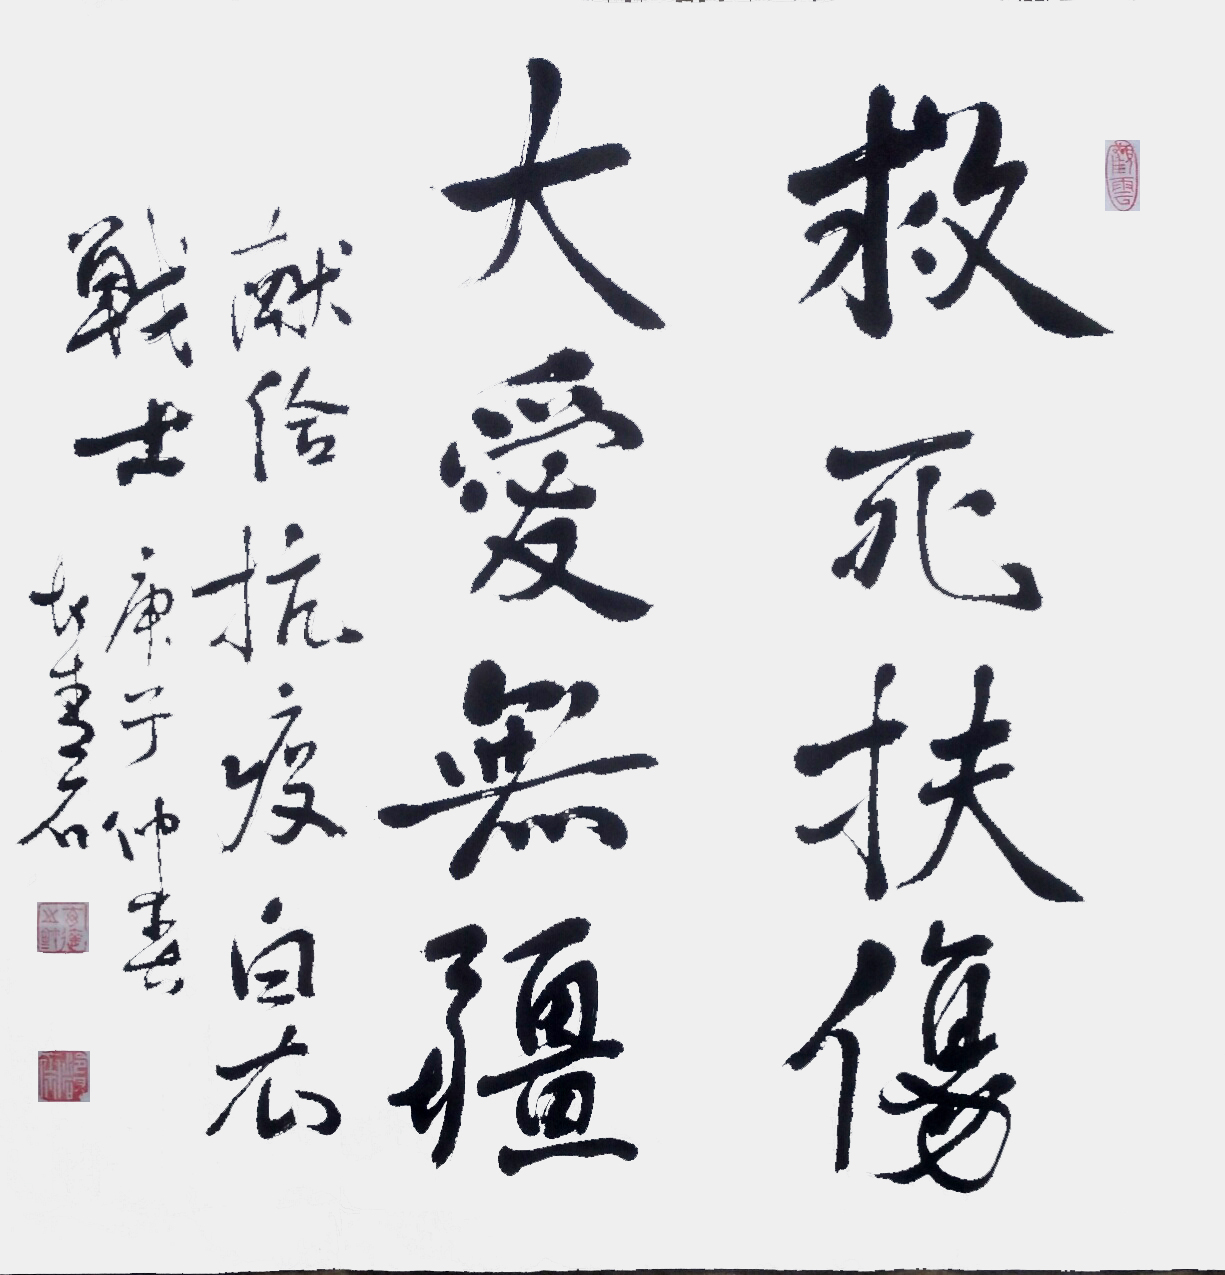 救死扶傷
大愛無疆
獻给抗疫白衣
戰士 庚子仲春
青石